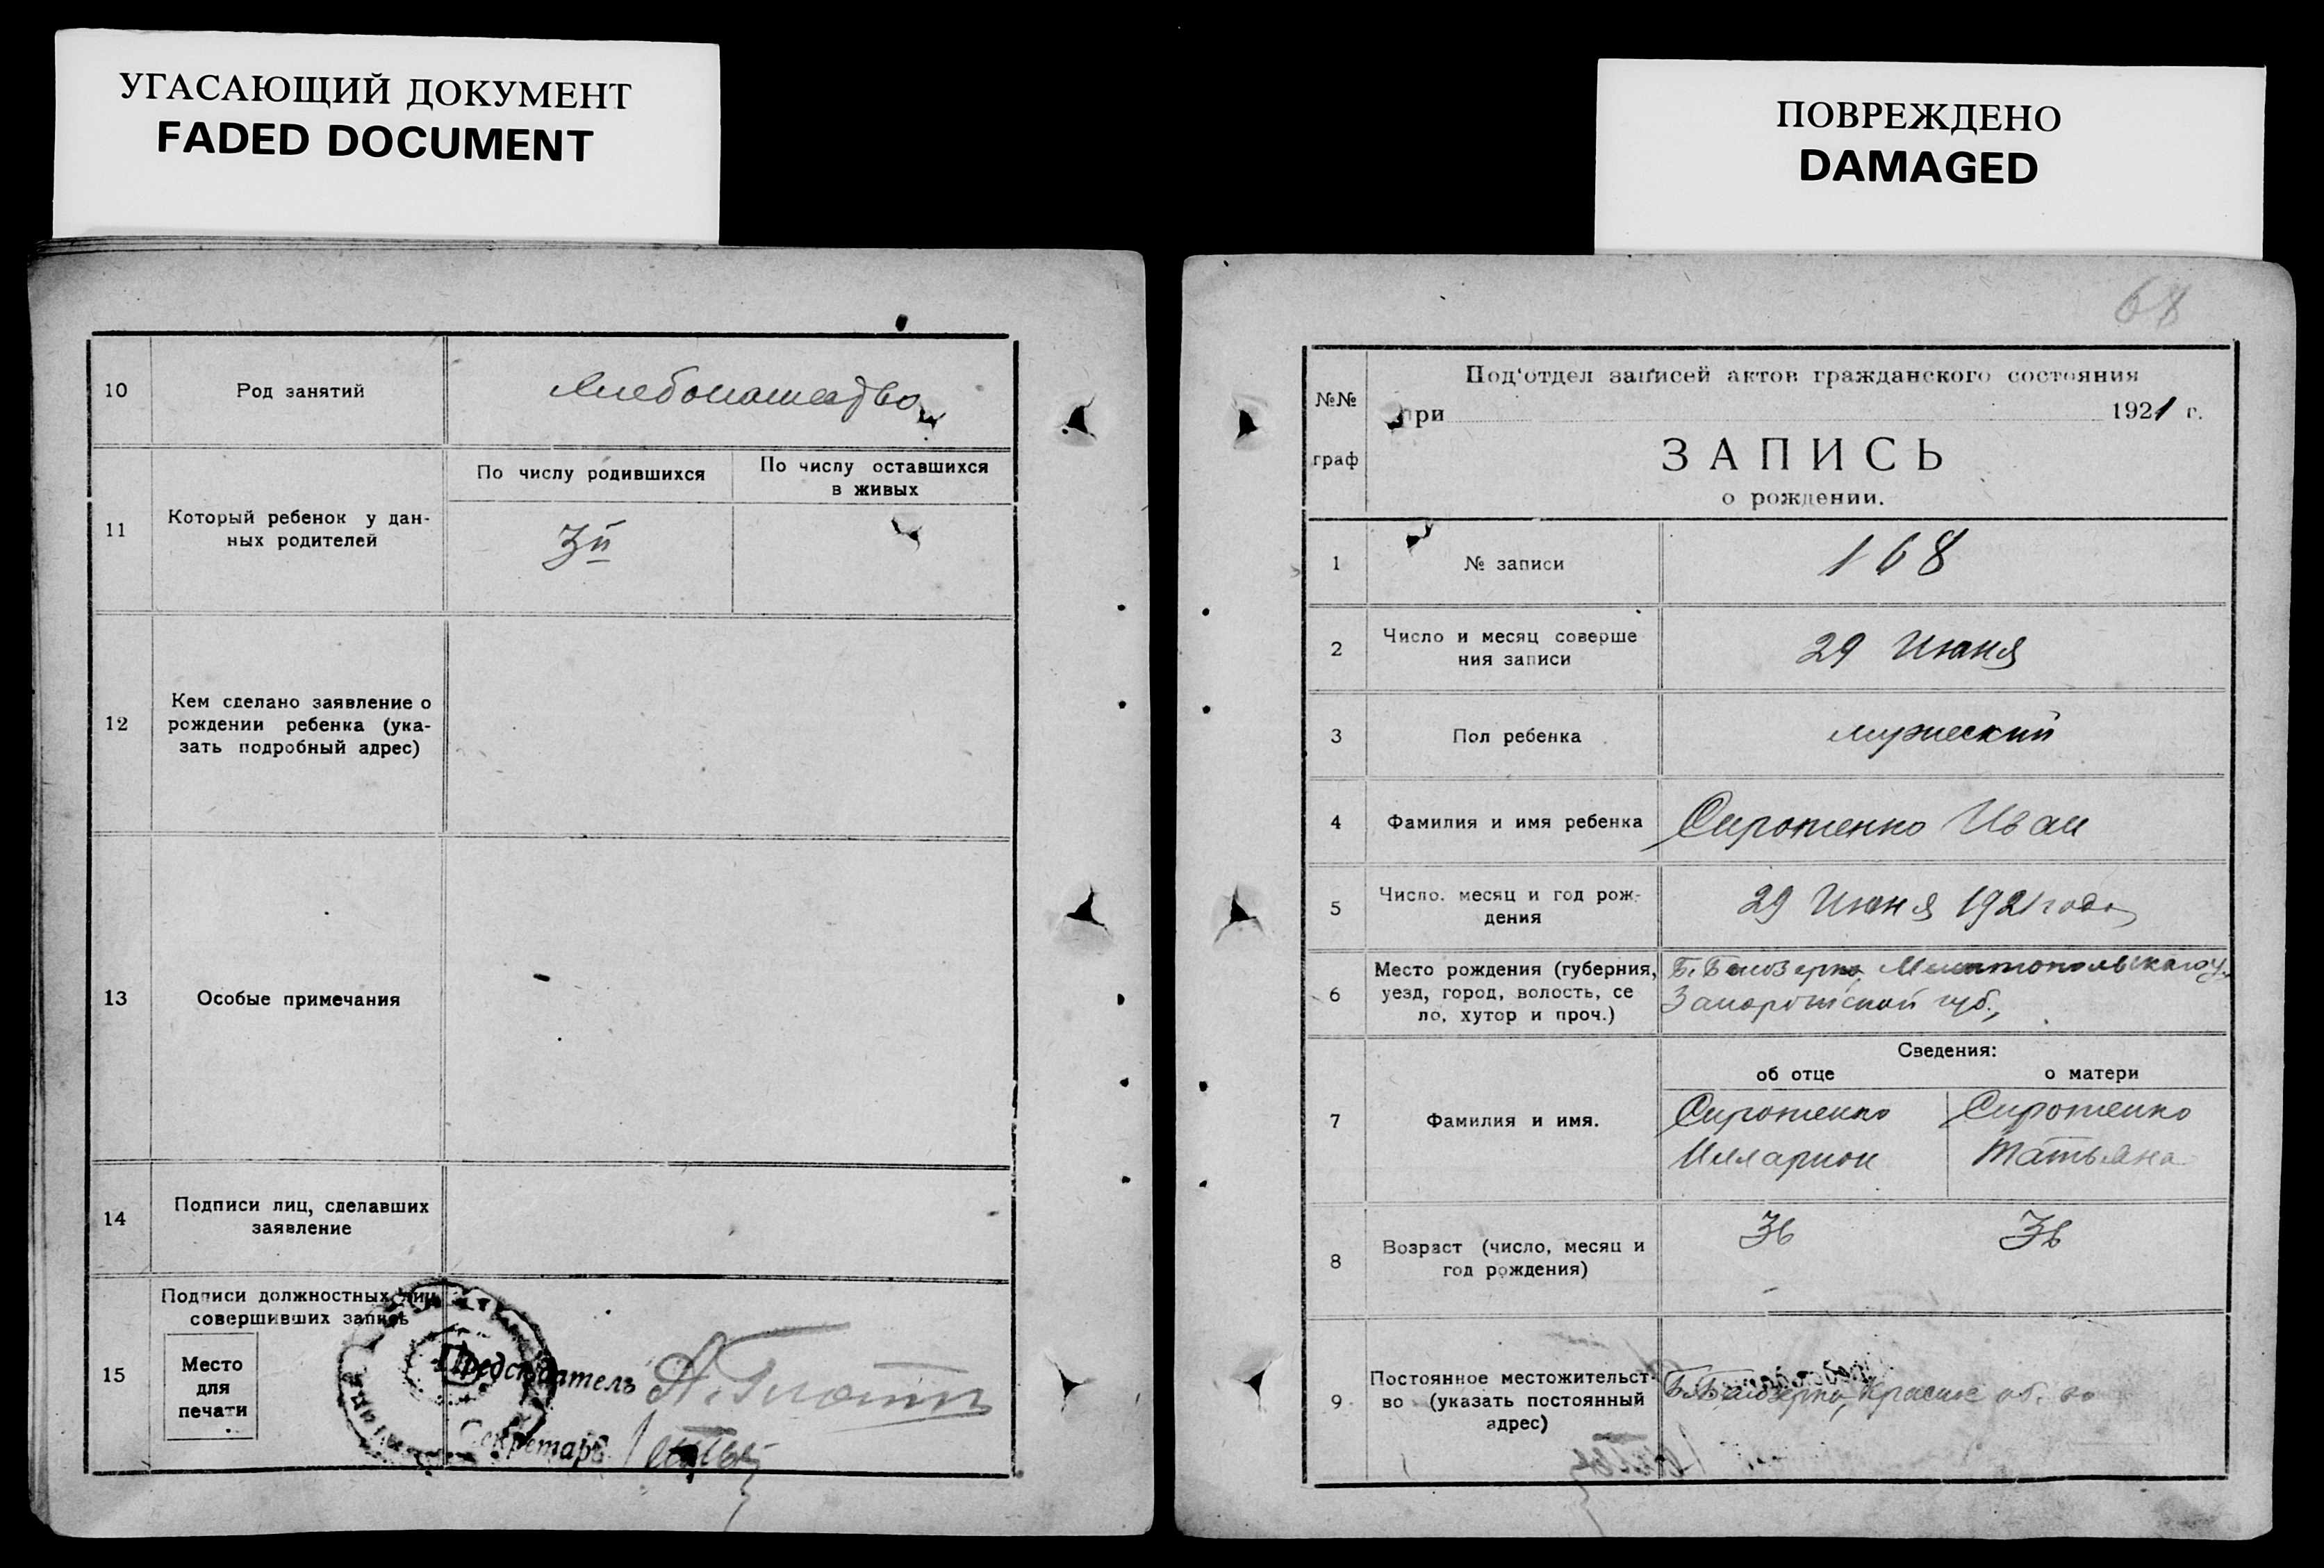 УГАСАЮЩИЙ ДОКУМЕНТ
FADED DOCUMENT
10
Род занятий
Хлебопашество
11
Который ребенок у дан-
ных родителей
По числу родившихся
3й
По числу оставшихся
в живых
12
Кем сделано заявление о
рождении ребенка (ука-
зать подробный адрес)
13
Особые примечания
14
Подписи лиц, сделавших
заявление
15
Подписи должностных лиц
совершивших запись
Место
для
печати
Председатель
Секретарь
ПОВРЕЖДЕНО
DAMAGED
68
№№
граф
Под'отдел записей актов гражданского состояния
при 1921 г.
ЗАПИСЬ
о рождении.
1
№ записи
168
2
Число и месяц соверше
ния записи
29 Июня
3
Пол ребенка
мужеский
4
Фамилия и имя ребенка
Сиротенко Иван
5
Число. месяц и год рож-
дения
29 Июня 1921 года
6
Место рождения (губерния,
уезд, город, волость, се
ло, хутор и проч.)
Б. Белозерка Мелитопольскаго у.
Запорожской губ.,
Сведения:
об отце
о матери
7
Фамилия и имя.
Сиротенко
Илларион
Сиротенко
Татьяна
8
Возраст (число, месяц и
год рождения)
36
36
9
Постоянное местожительст-
во (указать постоянный
адрес)
Б. Белозерка,